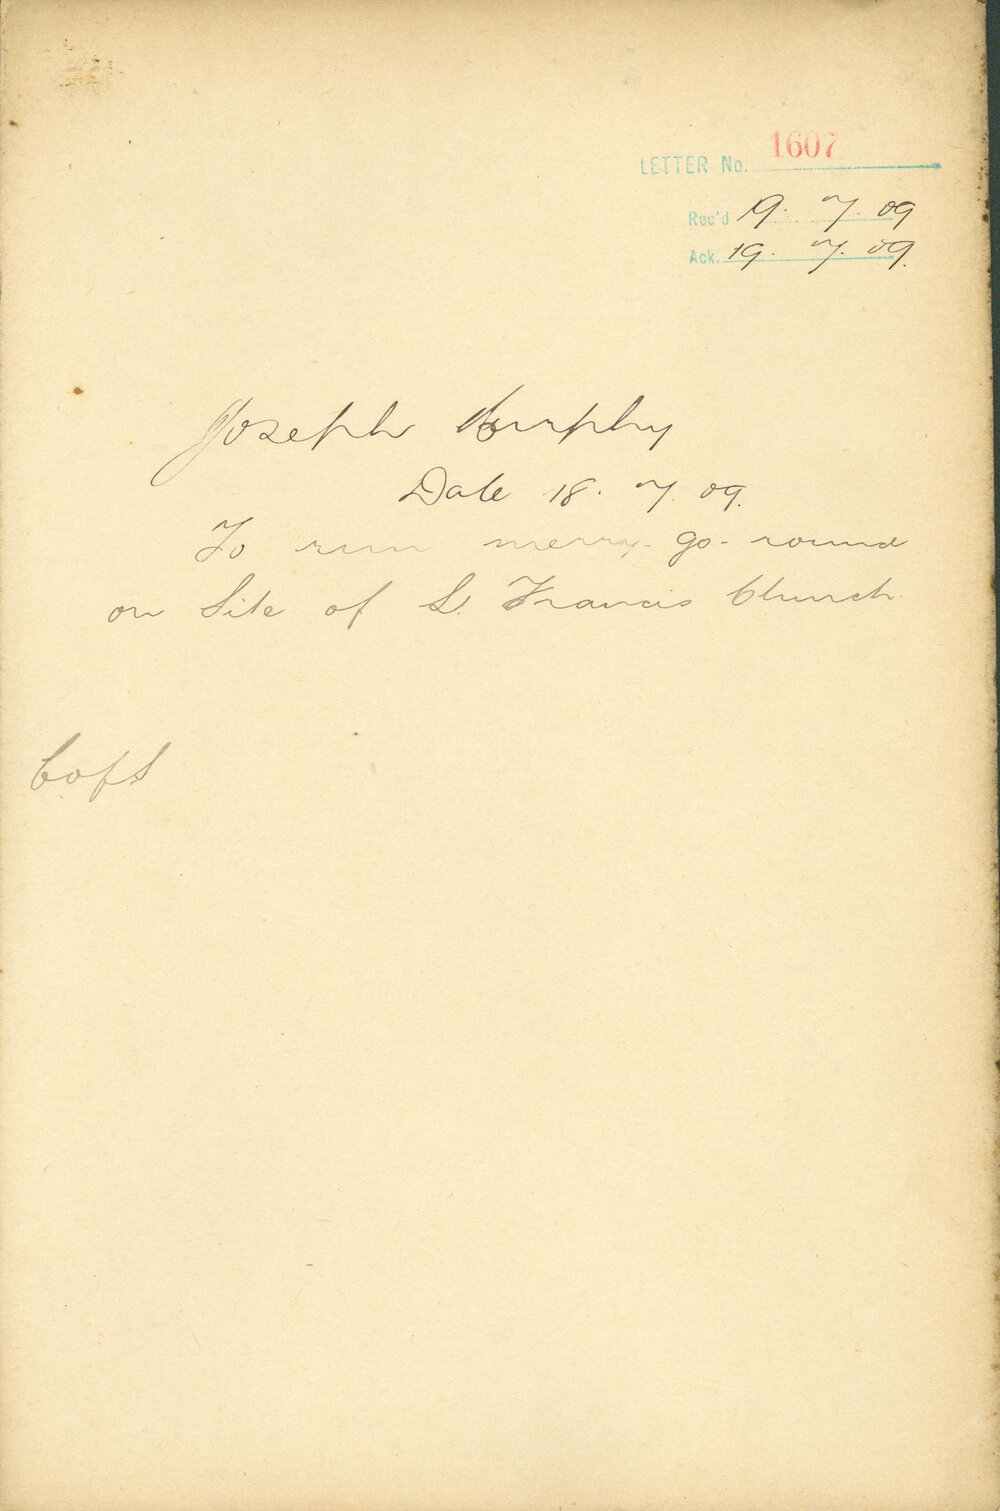 LETTER No. 1607
Rec'd 19. 7. 09
Ack. 19. 7. 09.
Joseph Murphy
Date 18. 7. 09.
To run merry-go-round
on Site of St. Francis Church.
C of S